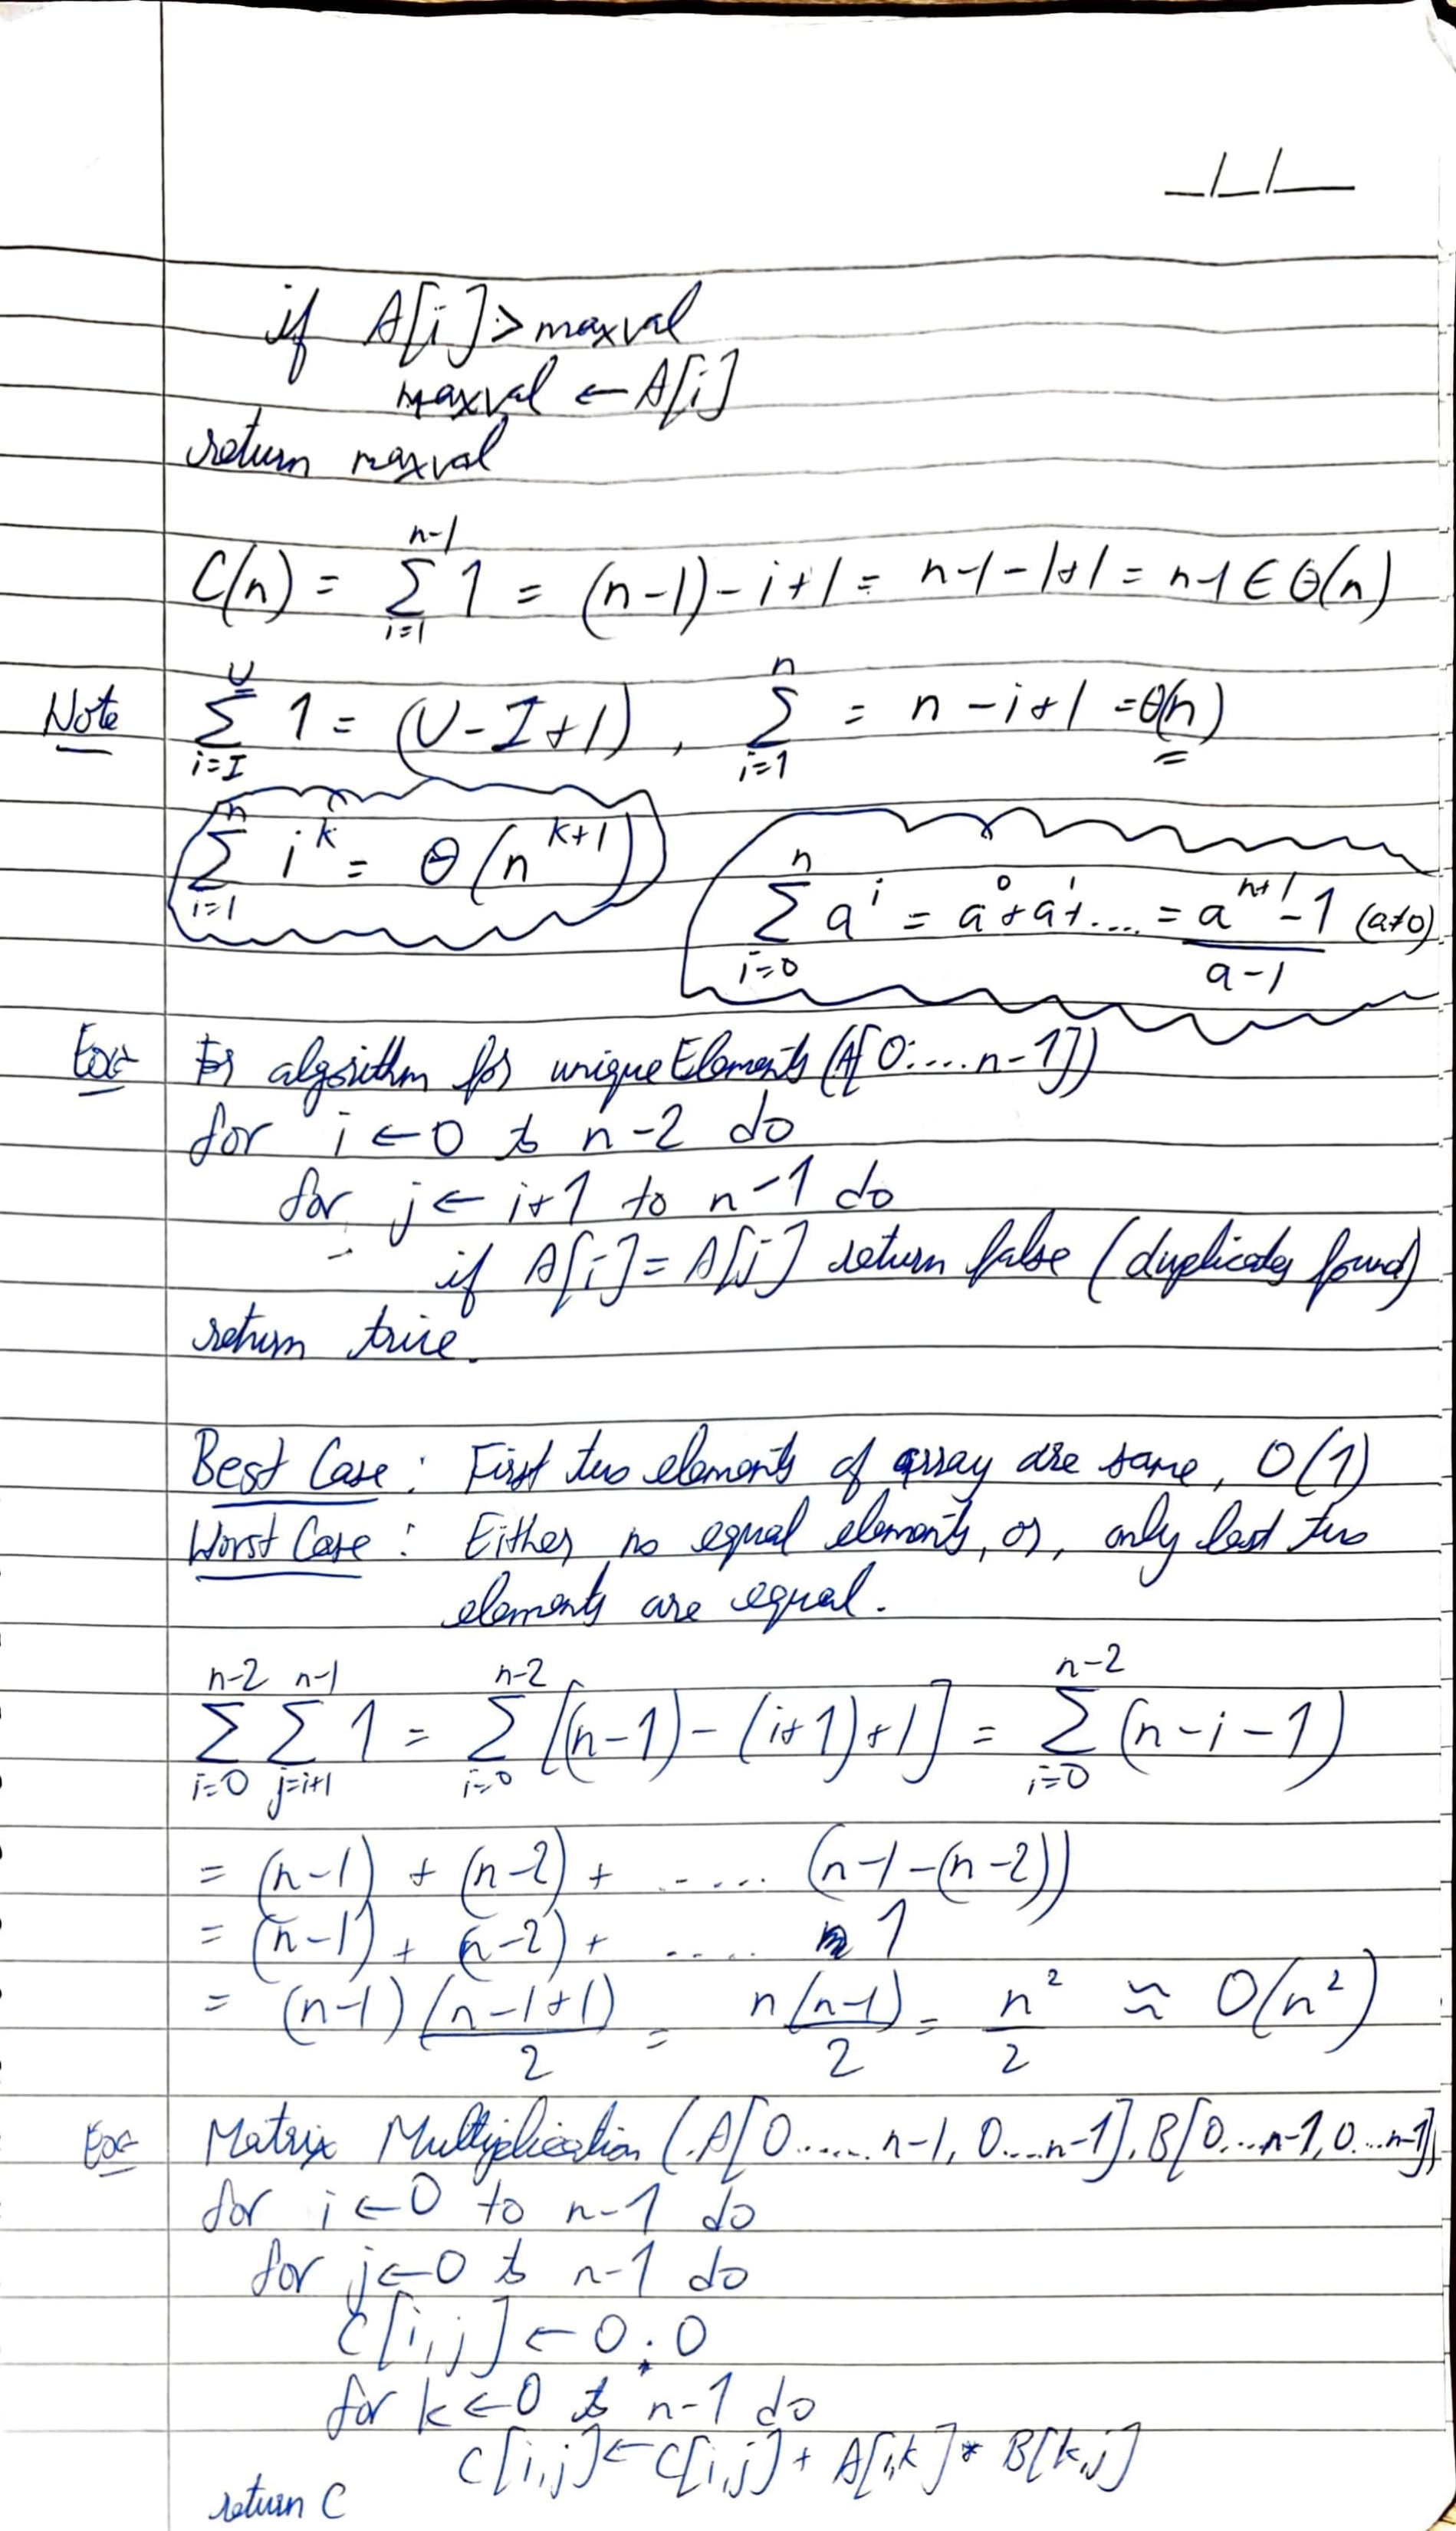 _/_/_
if A[i] > maxval
maxval ← A[i]
return maxval
C(n) = ∑_{i=1}^{n-1} 1 = (n-1)-i+1 = n-1-1+1 = n-1 ∈ Θ(n)
Note ∑_{i=I}^{U} 1 = (U-I+1), ∑_{i=1}^{n} = n-i+1 = Θ(n)
∑_{i=1}^{n} i^k = Θ(n^{k+1})
∑_{i=0}^{n} a^i = a^0+a^1+.... = (a^{n+1}-1)/(a-1) (a≠0)
Ex:- algorithm for uniqueElements (A[0:....n-1])
for i ← 0 to n-2 do
for j ← i+1 to n-1 do
if A[i] = A[j] return false (duplicates found)
return true.
Best Case : First two elements of array are same, O(1)
Worst Case : Either no equal elements, or, only last two
elements are equal.
∑_{i=0}^{n-2} ∑_{j=i+1}^{n-1} 1 = ∑_{i=0}^{n-2} [(n-1)-(i+1)+1] = ∑_{i=0}^{n-2} (n-i-1)
= (n-1) + (n-2) + ..... (n-1-(n-2))
= (n-1) + (n-2) + ..... 1
= (n-1)(n-1+1)/2 = n(n-1)/2 = n²/2 ≈ O(n²)
Ex:- Matrix Multiplication (A[0.....n-1, 0...n-1], B[0...n-1, 0...n-1])
for i ← 0 to n-1 do
for j ← 0 to n-1 do
C[i,j] ← 0.0
for k ← 0 to n-1 do
C[i,j] ← C[i,j] + A[i,k] * B[k,j]
return C